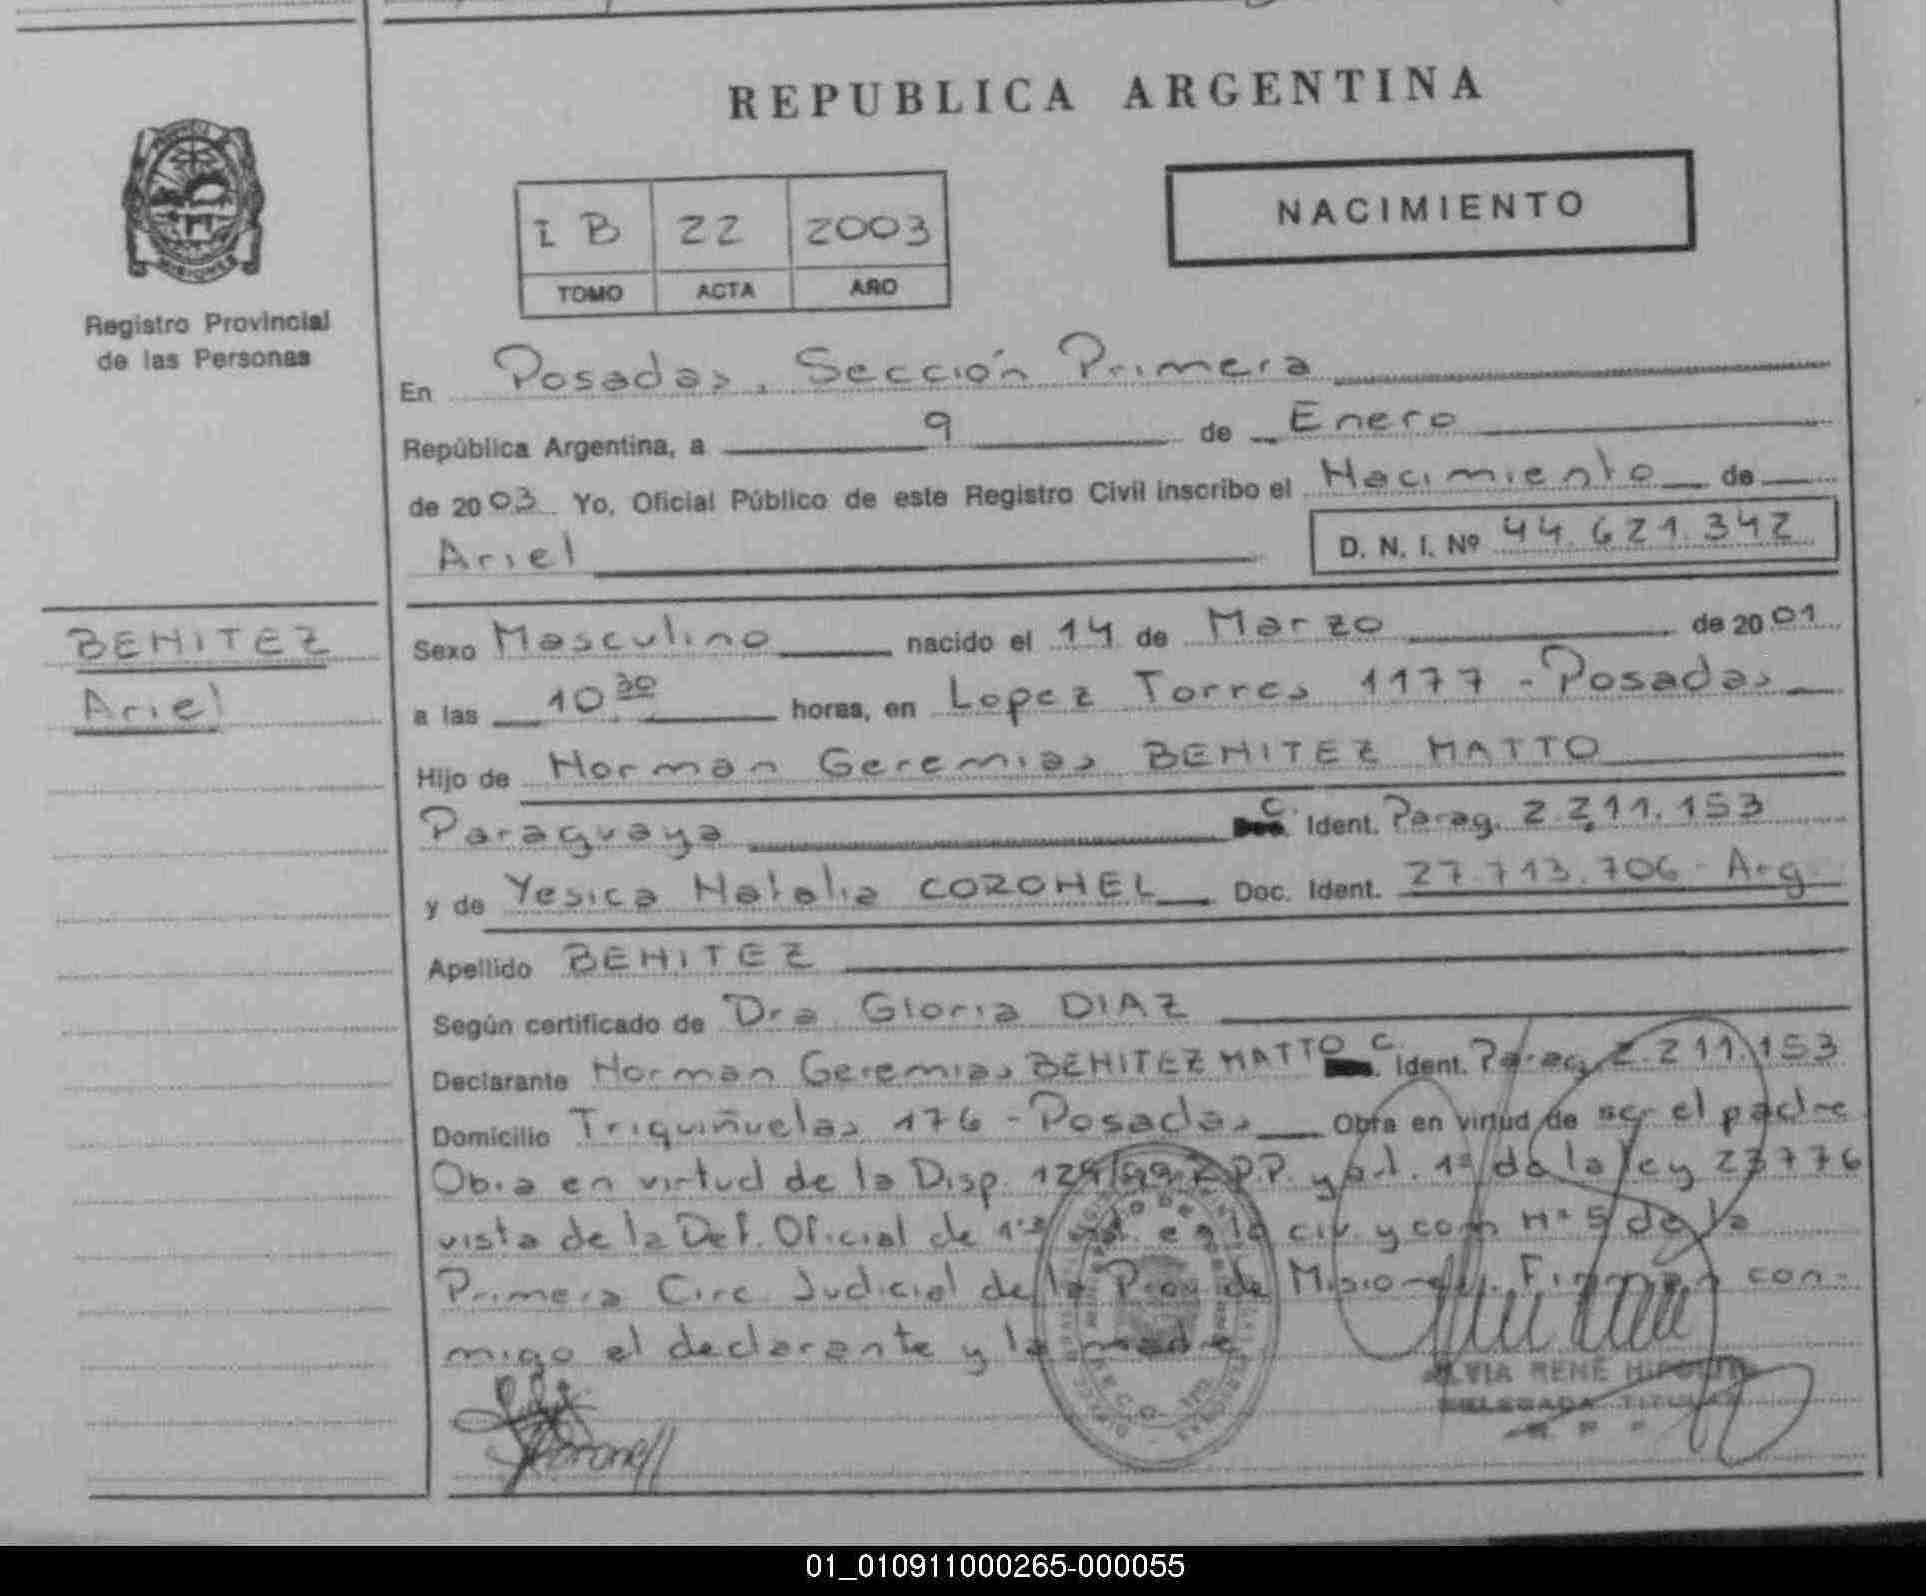 REPUBLICA ARGENTINA
NACIMIENTO
I B 22 2003
TOMO ACTA AÑO
MISIONES
Registro Provincial
de las Personas
En Posadas, Sección Primera
República Argentina, a 9 de Enero
de 2003 Yo, Oficial Público de este Registro Civil inscribo el Nacimiento de
Ariel D. N. I. Nº 44.621.342
BENITEZ
Ariel
Sexo Masculino nacido el 14 de Marzo de 2001
a las 10 30 horas, en Lopez Torres 1177 - Posadas
Hijo de Norman Geremias BENITEZ MATTO
Paraguaya C. Ident. Parag. 2.211.153
y de Yesica Natalia CORONEL Doc. Ident. 27.713.706 - Arg.
Apellido BENITEZ
Según certificado de Dra Gloria DIAZ
Declarante Norman Geremias BENITEZ MATTO C. Ident. Parag. 2.211.153
Domicilio Triquiñuelas 176 - Posadas Obra en virtud de ser el padre
Obra en virtud de la Disp. 129/99 R.P.P. y art. 1º de la ley 23776
vista de la Def. Oficial de 1ra en lo civ. y com Nº 5 de la
Primera Circ. Judicial de la Prov de Misiones. Firman con-
migo el declarante y la madre
SILVIA RENÉ
DELEGADA TITULAR
01_010911000265-000055